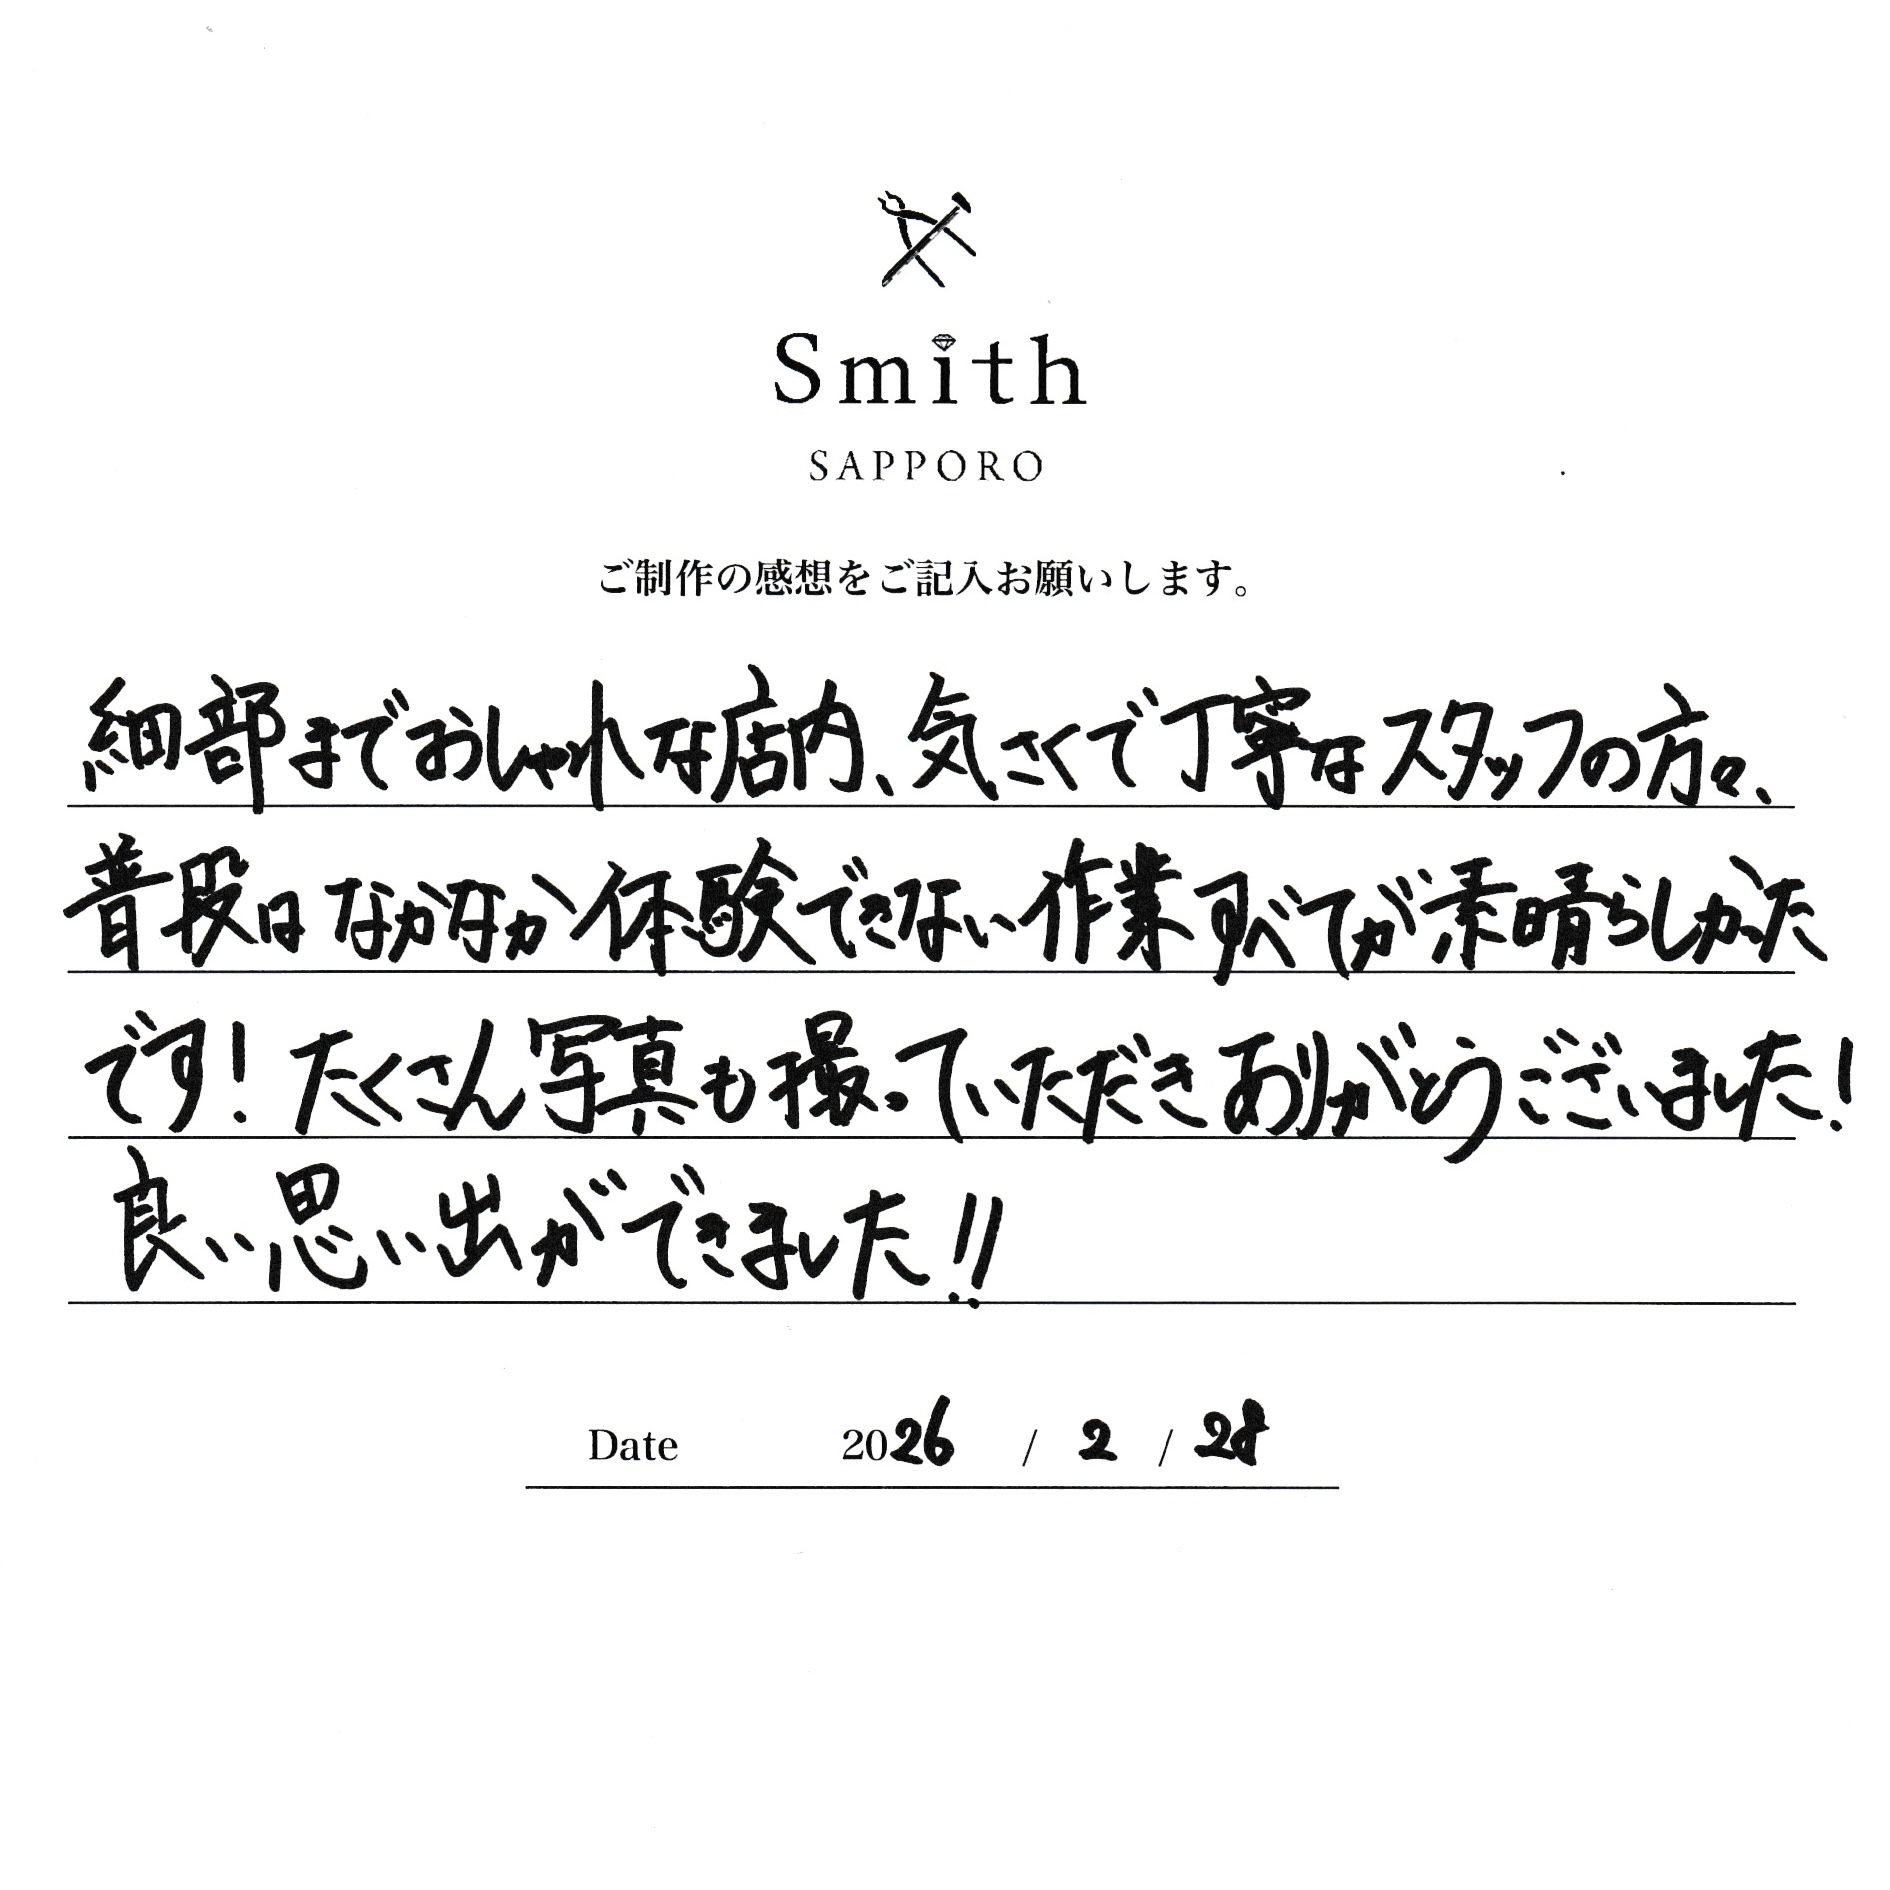 Smith
SAPPORO
ご制作の感想をご記入お願いします。
細部までおしゃれな店内、気さくで丁寧なスタッフの方々、
普段はなかなか体験できない作業すべてが素晴らしかった
です！たくさん写真も撮っていただきありがとうございました！
良い思い出ができました！！
Date 2026 / 2 / 28